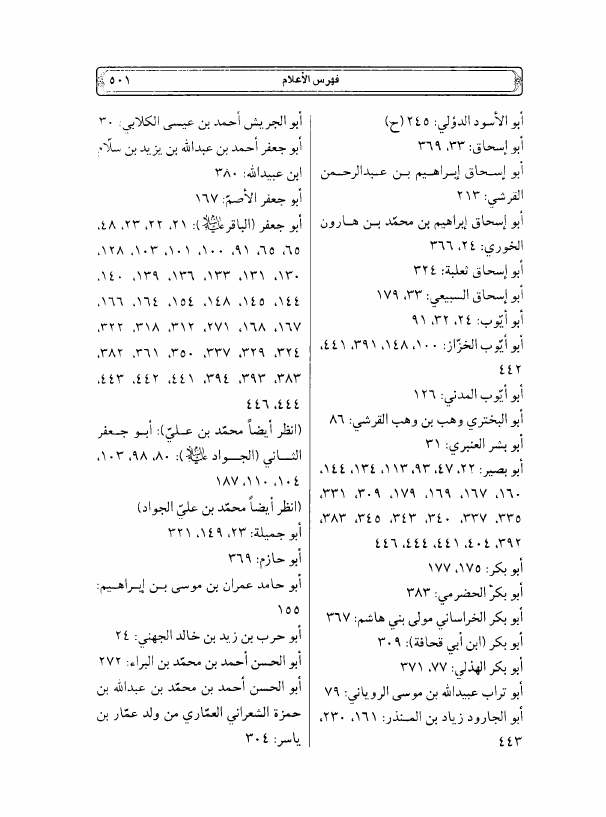 فهرس الأعلام
٥٠١
أبو الأسود الدؤلي: ٢٤٥ (ح)
أبو إسحاق: ٣٣، ٣٦٩
أبو إسحاق إبراهيم بن عبدالرحمن
القرشي: ٢١٣
أبو إسحاق إبراهيم بن محمّد بن هارون
الخوري: ٢٤، ٣٦٦
أبو إسحاق ثعلبة: ٣٢٤
أبو إسحاق السبيعي: ٣٣، ١٧٩
أبو أيّوب: ٢٤، ٣٢، ٩١
أبو أيّوب الخزّاز: ١٠٠، ١٤٨، ٣٩١، ٤٤١،
٤٤٢
أبو أيّوب المدني: ١٢٦
أبو البختري وهب بن وهب القرشي: ٨٦
أبو بشر العنبري: ٣١
أبو بصير: ٢٢، ٤٧، ٩٣، ١١٣، ١٣٤، ١٤٤،
١٦٠، ١٦٧، ١٦٩، ١٧٩، ٣٠٩، ٣٣١،
٣٣٥، ٣٣٧، ٣٤٠، ٣٤٣، ٣٤٥، ٣٨٣،
٣٩٢، ٤٠٤، ٤٤١، ٤٤٤، ٤٤٦
أبو بكر: ١٧٥، ١٧٧
أبو بكر الحضرمي: ٣٨٣
أبو بكر الخراساني مولى بني هاشم: ٣٦٧
أبو بكر (ابن أبي قحافة): ٣٠٩
أبو بكر الهذلي: ٧٧، ٣٧١
أبو تراب عبيدالله بن موسى الروياني: ٧٩
أبو الجارود زياد بن المنذر: ١٦١، ٢٣٠،
٤٤٣
أبو الجريش أحمد بن عيسى الكلابي: ٣٠
أبو جعفر أحمد بن عبدالله بن يزيد بن سلام
ابن عبيدالله: ٣٨٠
أبو جعفر الأصمّ: ١٦٧
أبو جعفر (الباقر): ٢١، ٢٢، ٢٣، ٤٨،
٦٥، ٦٥، ٩١، ١٠٠، ١٠١، ١٠٣، ١٢٨،
١٣٠، ١٣١، ١٣٣، ١٣٦، ١٣٩، ١٤٠،
١٤٤، ١٤٥، ١٤٨، ١٥٤، ١٦٤، ١٦٦،
١٦٧، ١٦٨، ٢٧١، ٣١٢، ٣١٨، ٣٢٢،
٣٢٤، ٣٢٩، ٣٣٧، ٣٥٠، ٣٦١، ٣٨٢،
٣٨٣، ٣٩٣، ٣٩٤، ٤٤١، ٤٤٢، ٤٤٣،
٤٤٤، ٤٤٦
(انظر أيضاً محمّد بن عليّ): أبو جعفر
الثاني (الجواد): ٨٠، ٩٨، ١٠٣،
١٠٤، ١١٠، ١٨٧
(انظر أيضاً محمّد بن عليّ الجواد)
أبو جميلة: ٢٣، ١٤٩، ٣٢١
أبو حازم: ٣٦٩
أبو حامد عمران بن موسى بن إبراهيم:
١٥٥
أبو حرب بن زيد بن خالد الجهني: ٢٤
أبو الحسن أحمد بن محمّد بن البراء: ٢٧٢
أبو الحسن أحمد بن محمّد بن عبدالله بن
حمزة الشعراني العمّاري من ولد عمّار بن
ياسر: ٣٠٤